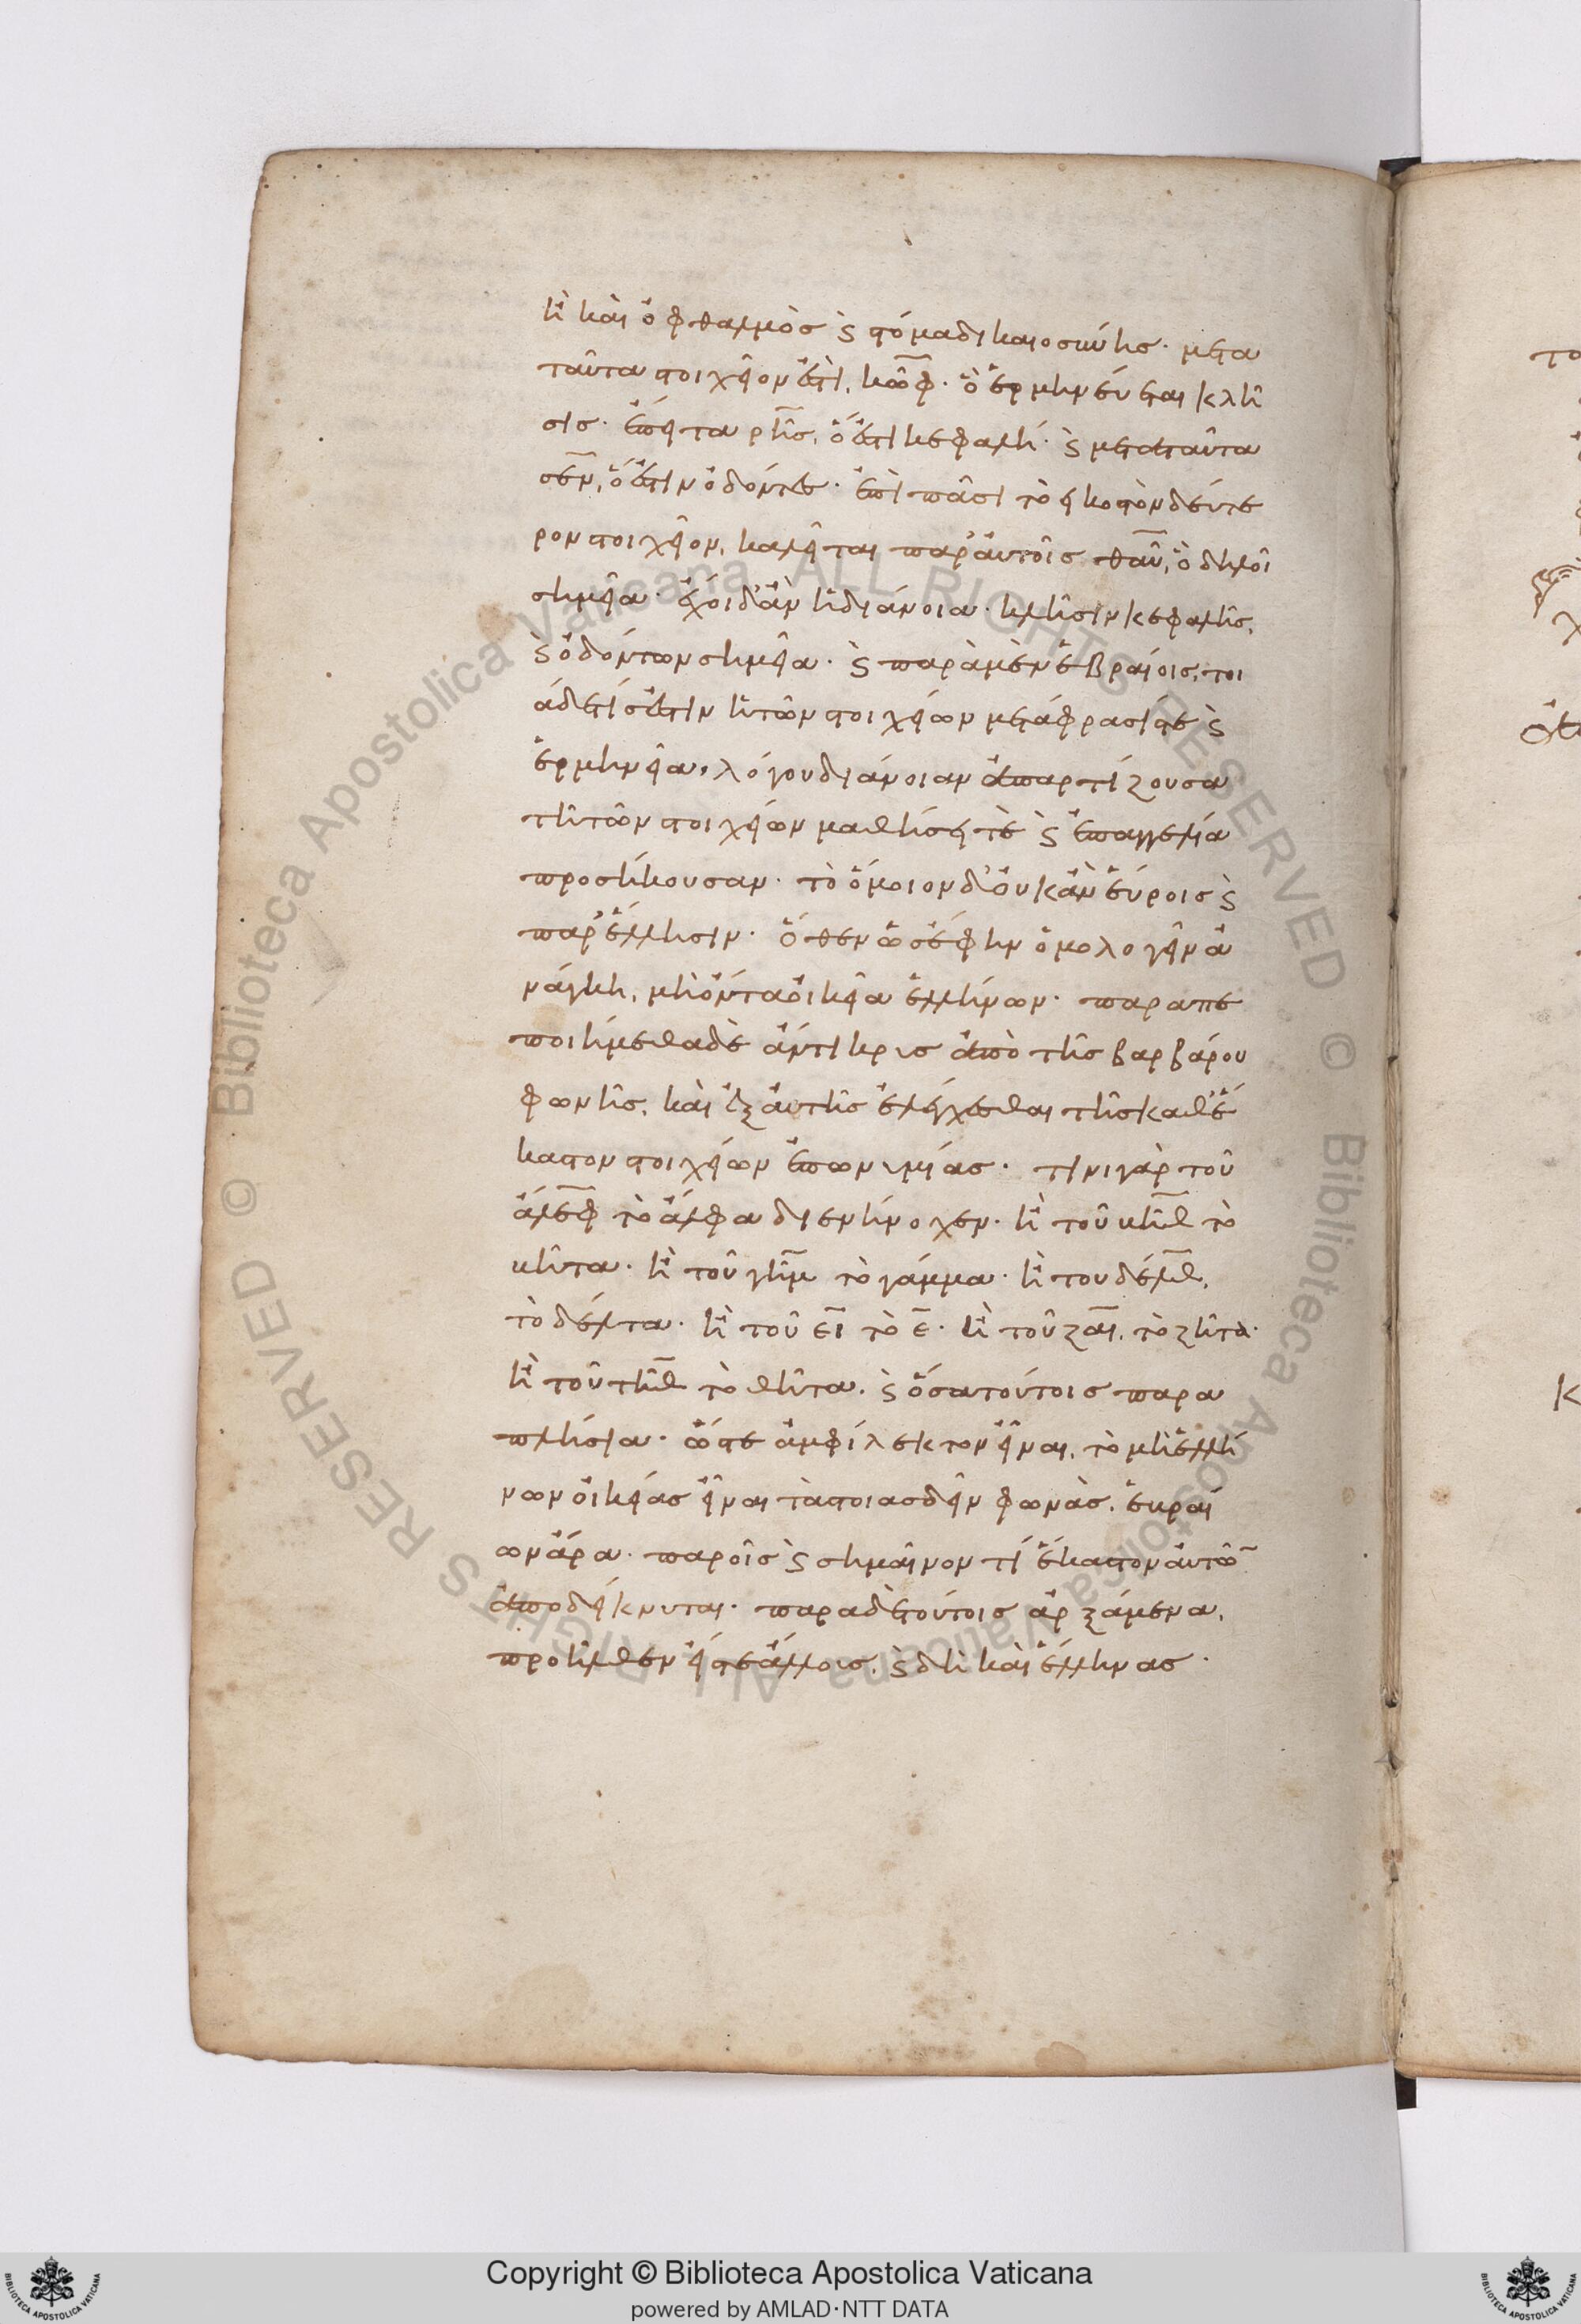 ἢ καὶ ὀφθαλμὸς ϗ στόμα δικαιοσύνης· μετα
ταῦτα στοιχεῖον ἐστὶ, κὼφ· ὃ ἑρμηνεύεται κλῆ
σις· ἔπειτα ρῆς, ὅ ἐστι κεφαλή· ϗ μετα ταῦτα
σεν, ὅ ἐστιν ὀδόντες· ἐπὶ πᾶσι τὸ εἰκοστὸν δεύτε
ρον στοιχεῖον, καλεῖται παρ' αὐτοῖς θαῦ, ὃ δηλοῖ
σημεῖα· ἔχοι δ' ἂν ἡ διάνοια· κλῆσιν κεφαλῆς,
ϗ ὀδόντων σημεῖα· ϗ παρὰ μὲν ἑβραίοις, τοι
άδε τίς ἐστιν ἡ τῶν στοιχείων μετάφρασίς τε ϗ
ἑρμηνεία, λόγου διάνοιαν ἀπαρτίζουσα
τῆ τῶν στοιχείων μαθήσει τὲ ϗ ἐπαγγελία
προσήκουσαν· τὸ ὅμοιον δ' οὐκ ἂν εὕροις ϗ
παρ' ἕλλησιν· ὅθεν ὡς ἔφην ὁμολογεῖν ἀ
νάγκη, μὴ ὄντα οἰκεῖα ἑλλήνων· παραπε
ποιήμεθα δὲ ἄντικρις ἀπὸ τῆς βαρβάρου
φωνῆς, καὶ ἐξ αὐτῆς ἐλέγχεσθαι τῆς καθ' ἕ
καστον στοιχείων ἐπωνυμίας· τίνι γὰρ τοῦ
ἄλεφ τὸ ἄλφα διενήνοχεν· ἢ τοῦ βὴθ τὸ
βῆτα· ἢ τοῦ γὴμ τὸ γάμμα· ἢ του δέλθ,
τὸ δέλτα· ἢ τοῦ εἰ τὸ ε· ἢ τοῦ ζαι, τὸ ζῆτα·
ἢ τοῦ τὴθ τὸ θῆτα. ϗ ὅσα τούτοις παρα
πλήσια· ὥστε ἀμφίλεκτον εἶναι, τὸ μὴ ἑλλή
νων οἰκείας εἶναι τὰς τοιασδεῖν φωνὰς. ἑβραί
ων ἄρα· παρ οἷς ϗ σημαῖνον τί ἕκαστον αὐτῶν
ἀποδείκνυται· παρα δὲ τούτοις ἀρξάμενα,
προῆλθεν εἴς τε ἄλλοις, ϗ δὴ καὶ ἕλληνας·
Copyright © Biblioteca Apostolica Vaticana
powered by AMLAD·NTT DATA